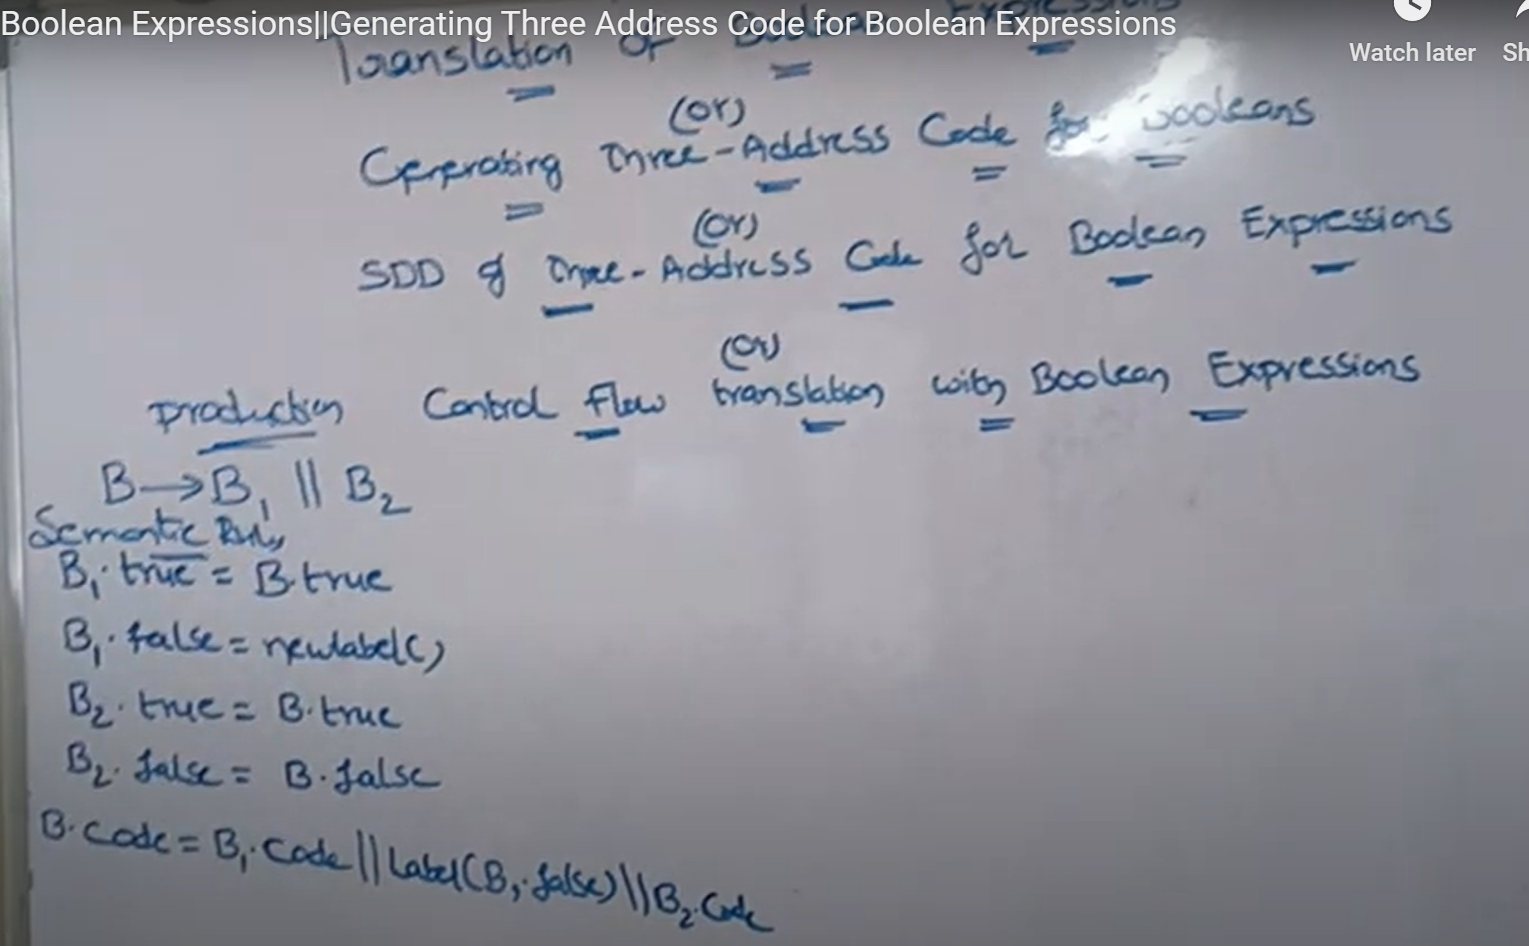 Boolean Expressions||Generating Three Address Code for Boolean Expressions
Watch later
Sh
Translation of Boolean Expressions
(or)
Generating Three-Address Code for Booleans
(or)
SDD of Three-Address Code for Boolean Expressions
(or)
Control Flow translation with Boolean Expressions
production
B→B₁ || B₂
Semantic Rules
B₁.true = B.true
B₁.false = newlabel()
B₂.true = B.true
B₂.false = B.false
B.code = B₁.code || Label(B₁.false) || B₂.code